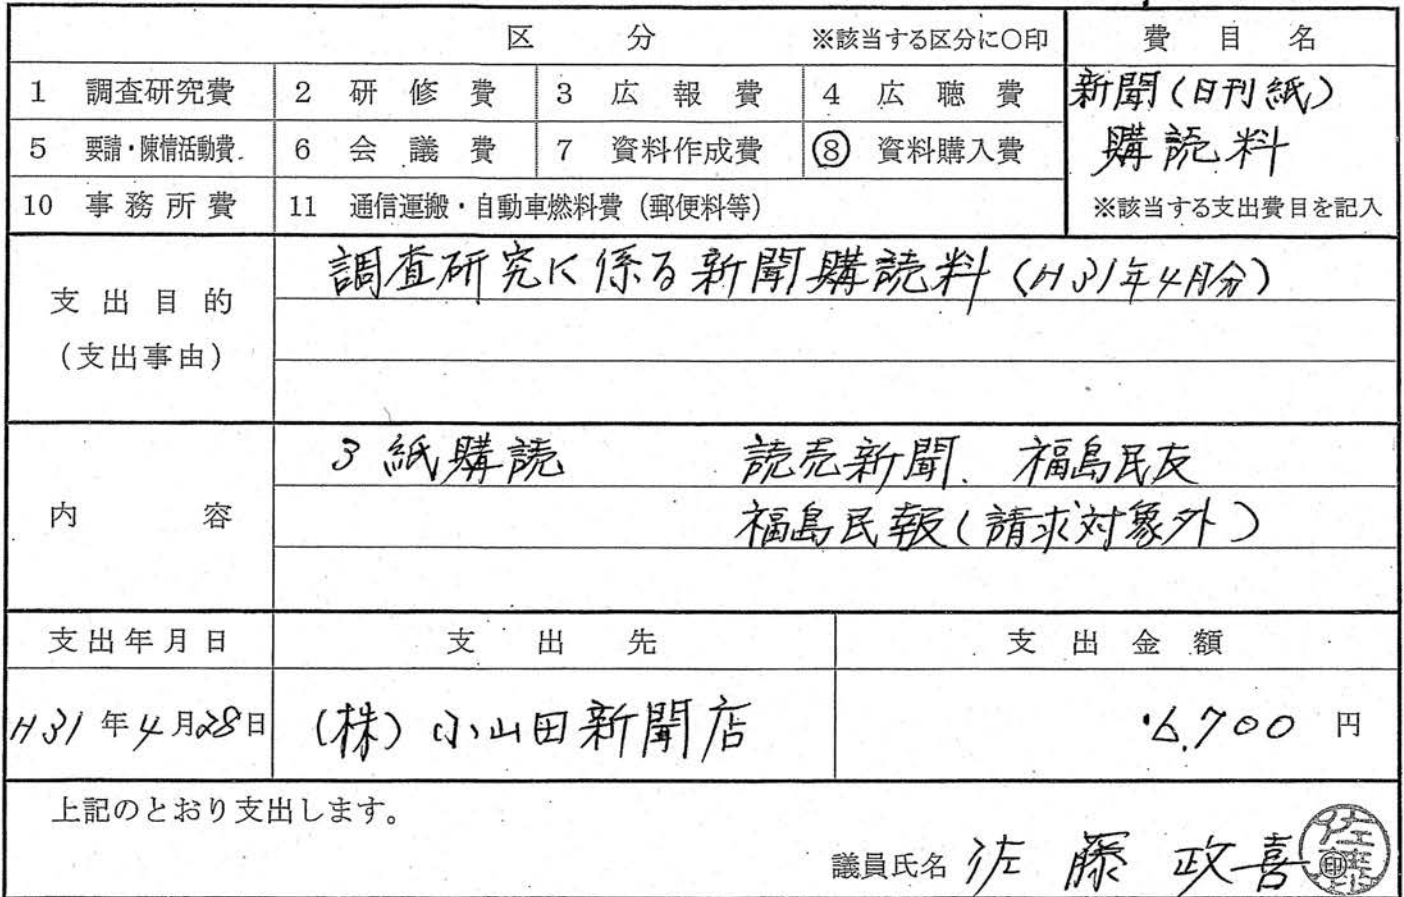 区分 ※該当する区分に○印 費目名
1 調査研究費 2 研修費 3 広報費 4 広聴費 新聞(日刊紙)
5 要請・陳情活動費 6 会議費 7 資料作成費 ⑧ 資料購入費 購読料
10 事務所費 11 通信運搬・自動車燃料費(郵便料等) ※該当する支出費目を記入
支出目的 調査研究に係る新聞購読料(H31年4月分)
(支出事由)
3紙購読 読売新聞、福島民友
内容 福島民報(請求対象外)
支出年月日 支出先 支出金額
H31年4月28日 (株)小山田新聞店 6,700円
上記のとおり支出します。
議員氏名 佐藤政喜 印